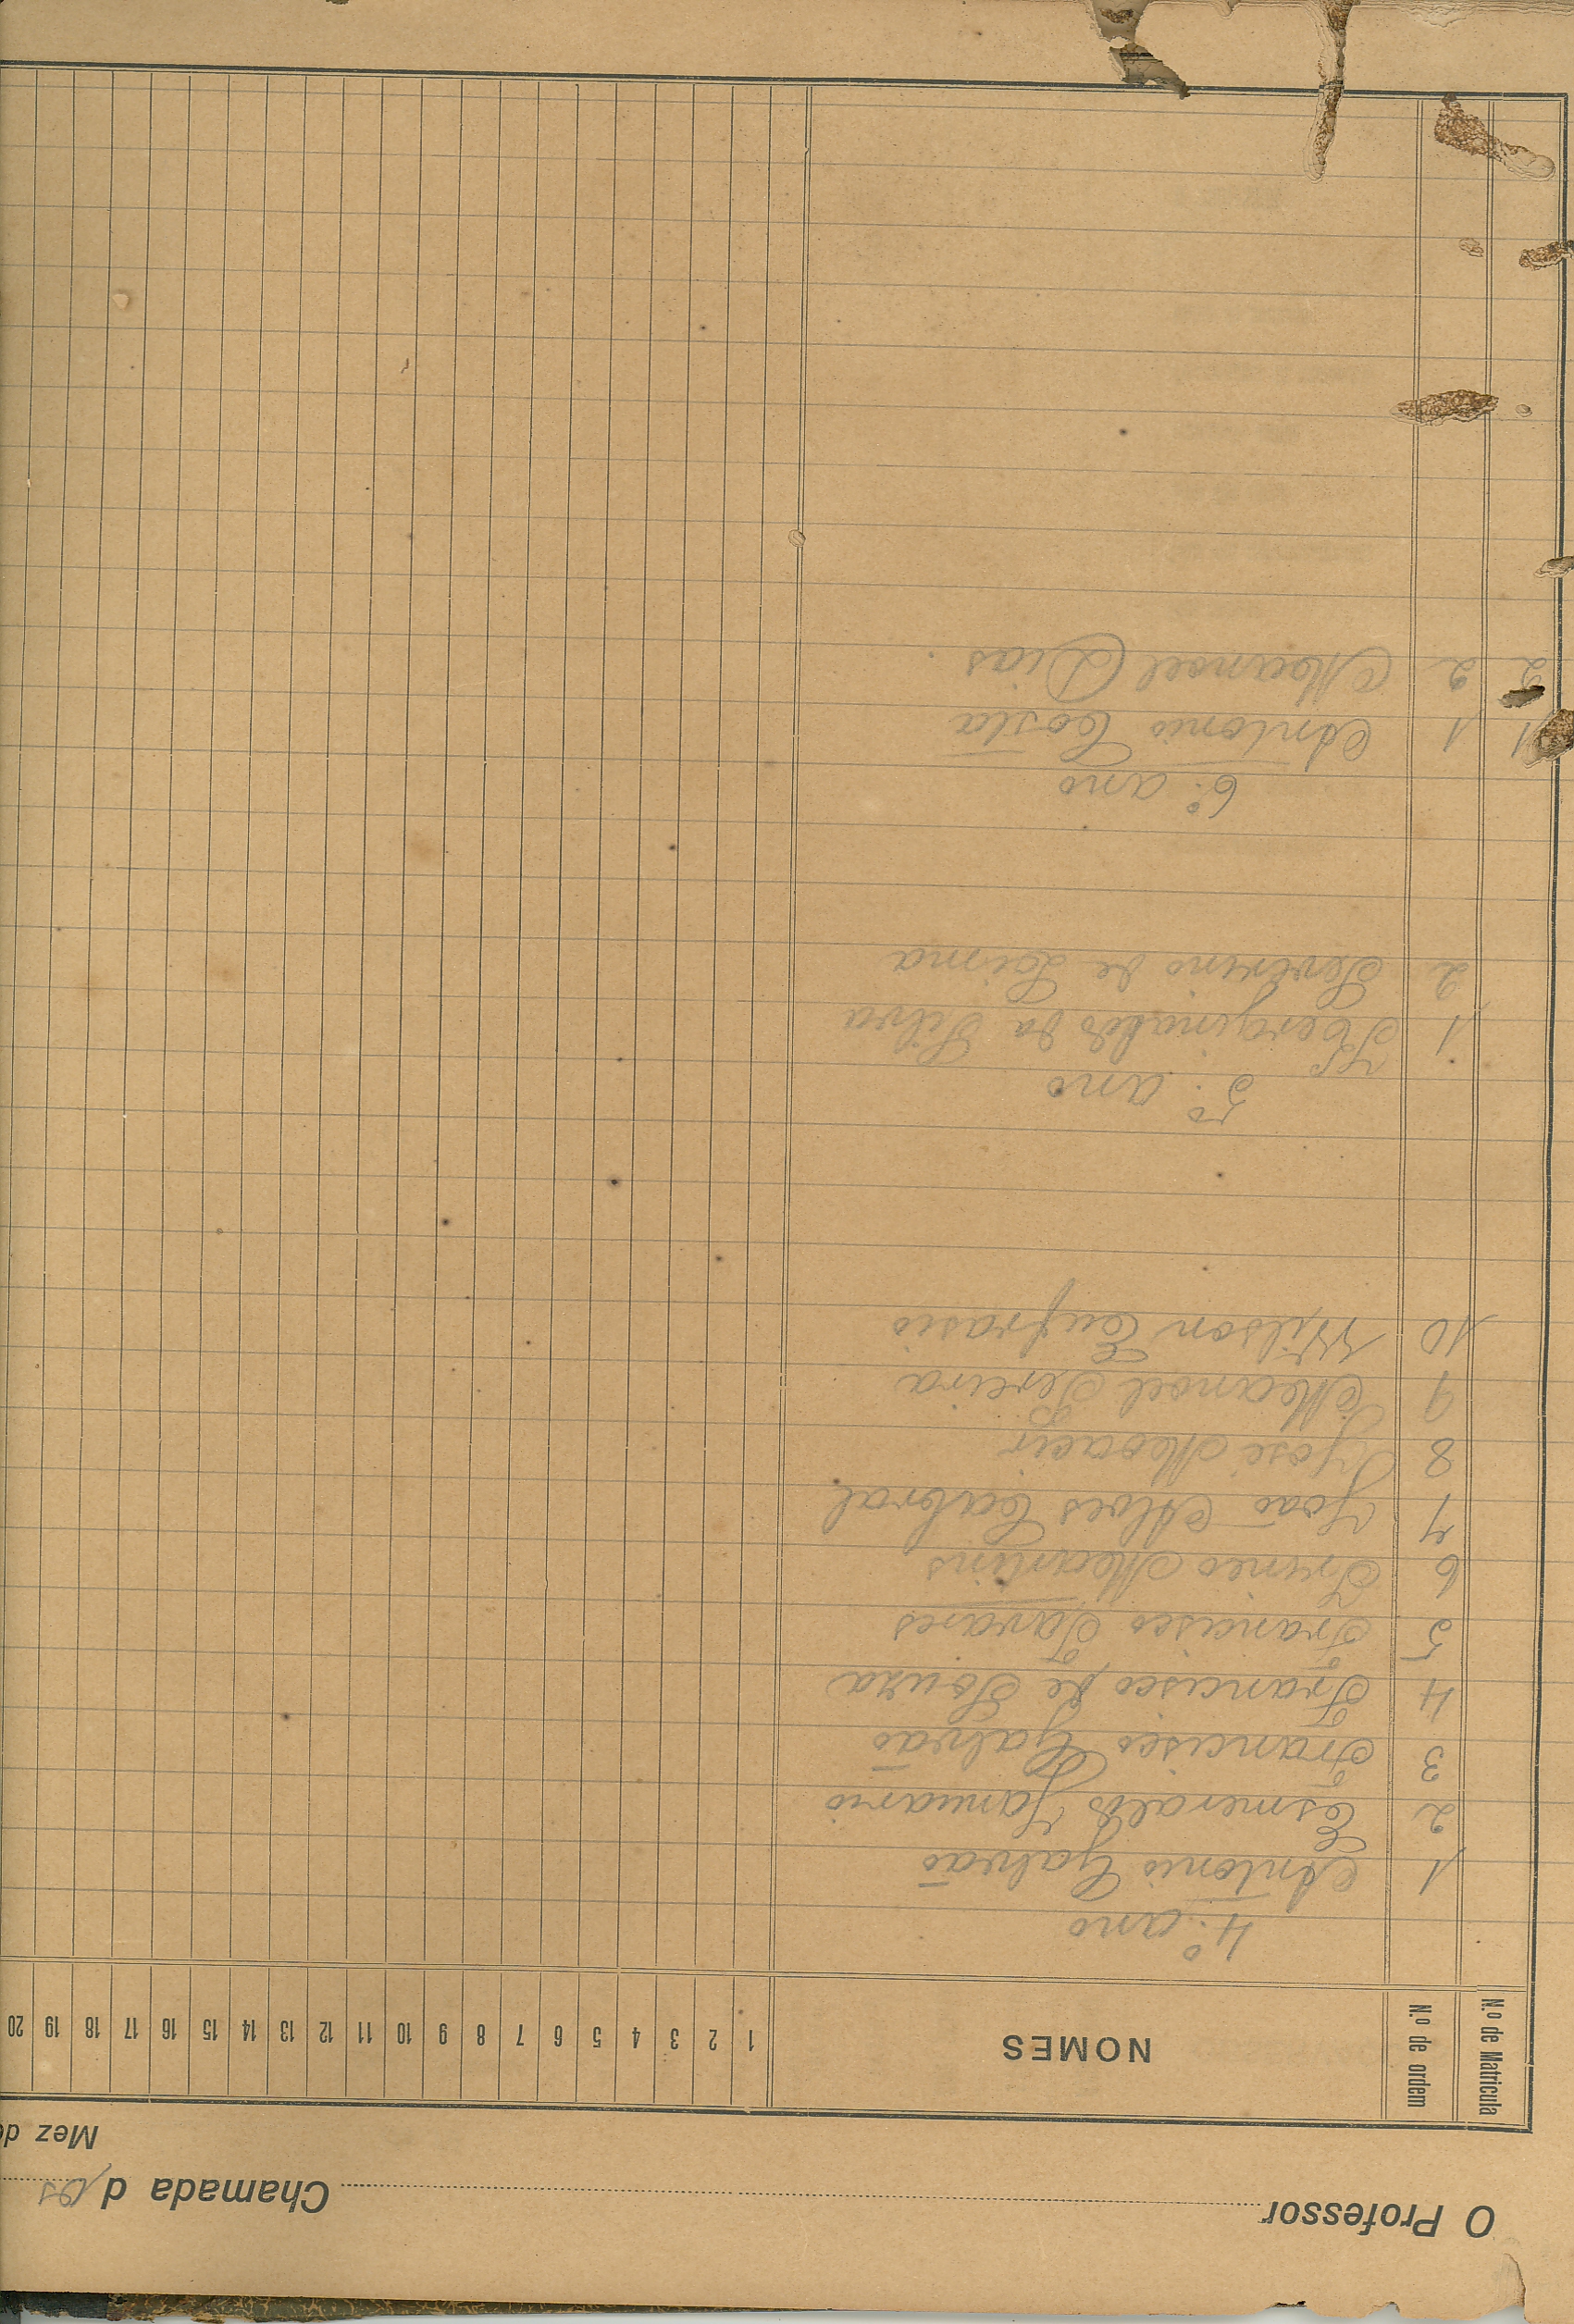 O Professor Chamada dos
Mez de
N.º de Matricula N.º de ordem NOMES 1 2 3 4 5 6 7 8 9 10 11 12 13 14 15 16 17 18 19 20
4º ano
1 Antonio Galvão
2 Esmeraldo Januario
3 Francisco Galvão
4 Francisco de Souza
5 Francisco Tavares
6 Irineo Martins
7 João Alves Cabral
8 José Moacir
9 Manoel Pereira
10 Wilson Eufrasio
5º ano
1 Herginaldo da Silva
2 Severino de Lima
6º ano
1 1 Antonio Costa
2 2 Manoel Dias.